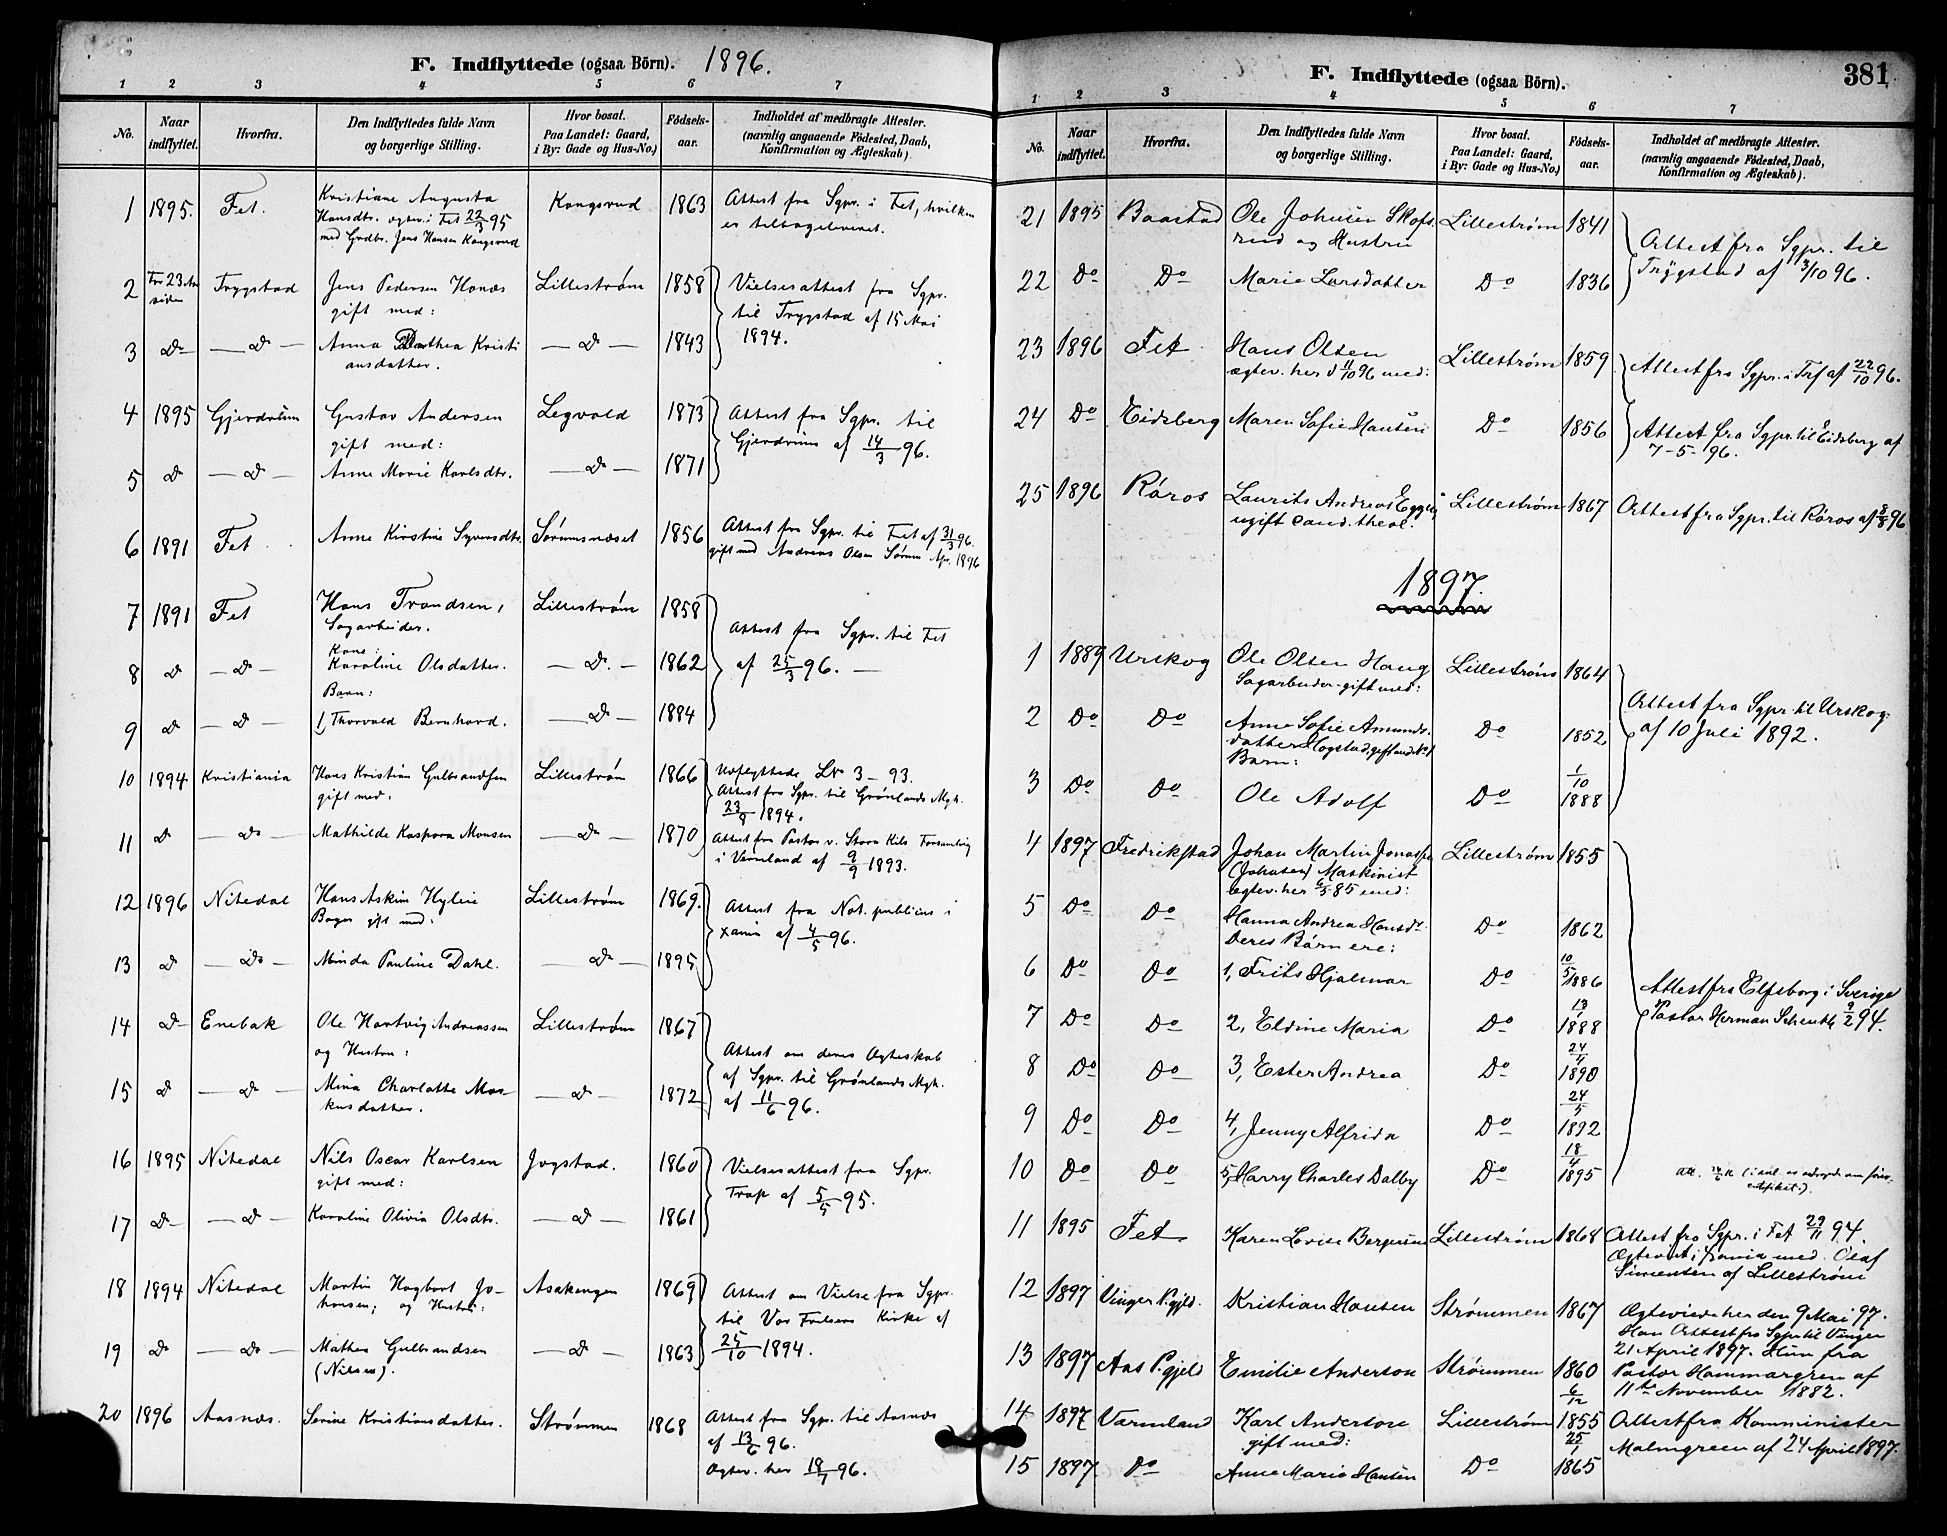 F. Indflyttede (ogsaa Börn). 1896.
1 2 3 4 5 6 7
No.
Naar indflyttet.
Hvorfra.
Den Indflyttedes fulde Navn
og borgerlige Stilling.
Hvor bosat.
Paa Landet: Gaard,
i By: Gade og Hus-No.)
Födsels-
aar.
Indholdet af medbragte Attester.
(navnlig angaaende Födested, Daab,
Konfirmation og Ægteskab).
1 1895. Fet. Kristiane Augusta Kongsrud 1863 Attest fra Sgpr. i Fet, hvilken
Hansdtr. ægtev. i Fet 22/3 95 er tilbageleveret.
med Grdbr. Jens Hansen Kongsrud
2 For 23 Aar siden Trygstad Jens Pedersen Honæs Lillestrøm 1858 Vielsesattest fra Sgpr.
gift med: til Trygstad af 15 Mai
3 Do — Do — Anna Dorthea Kristi — Do — 1843 1894.
ansdatter.
4 1895 Gjerdrum Gustav Andersen Legvold 1873 Attest fra Sgpr. til
gift med: Gjerdrum af 14/3 96.
5 Do — Do — Anne Marie Karlsdtr. — Do — 1871
6 1891 Fet Anne Kirstine Syversdtr. Sørumsnæset 1856 Attest fra Sgpr. til Fet af 31/3 96.
gift med Andreas Olsen Sørum Apr. 1896
7 1891 Fet Hans Trondsen, Lillestrøm 1858
Sagarbeider. Attest fra Sgpr. til Fet
Kone:
8 Do — Do — Karoline Olsdatter. — Do. — 1862 af 25/3 96. —
Barn:
9 Do — Do — 1, Thorvald Bernhard. — Do — 1884
10 1894 Kristiania Hans Kristian Gulbrandsen Lillestrøm 1866 Udflyttede Lb. 3 – 93.
gift med: Attest fra Sgpr. til Grønlands Mgh.
23/8 1894.
11 Do — Do — Mathilde Kaspara Monsen — Do — 1870 Attest fra Pastor v. Stora Kils Forsamling
i Värmland af 9/9 1893.
12 1896 Nitedal Hans Askim Hylin Lillestrøm 1869. Attest fra Not. publicus i
Bager gift med: Xania af 4/5 96.
13 Do — Do — Minda Pauline Dahl. — Do — 1895
14 Do Enebak Ole Hartvig Andreassen Lillestrøm 1867
og Hustru: Attest om deres Ægteskab
15 Do — Do — Mina Charlotte Mar- — Do — 1872 af Sgpr. til Grønlands Mgh.
kusdatter. af 11/6 96.
16 1895 Nitedal Nils Oscar Karlsen Jogstad. 1860 Vielsesattest fra Sgpr.
gift med: Trøp af 5/5 95.
17 Do — Do — Karoline Olivia Olsdtr. — Do — 1861
18 1894 Nitedal Martin Hagbart Jo- Asakengen 1869 Attest om Vielse fra Sgpr.
hansen; og Hustru: til Vor Frelsers Kirke af
19 Do — Do — Mathea Gulbrandsen — Do — 1863 25/10 1894.
(Nilsen).
20 1896 Aasnæs. Serine Kristiansdatter. Strømmen 1868 Attest fra Sgpr. til Aasnæs
af 13/6 96.
Ægtev. her 18/7 96.
F. Indflyttede (ogsaa Börn). 381
1 2 3 4 5 6 7
No.
Naar indflyttet.
Hvorfra.
Den Indflyttedes fulde Navn
og borgerlige Stilling.
Hvor bosat.
Paa Landet: Gaard,
i By: Gade og Hus-No.)
Födsels-
aar.
Indholdet af medbragte Attester.
(navnlig angaaende Födested, Daab,
Konfirmation og Ægteskab).
21 1895 Baastad Ole Johnsen Skofs- Lillestrøm 1841 Attest fra Sgpr. til
rud og Hustru Trøgstad af 3/10 96.
22 Do Do Marie Larsdatter Do 1836
23 1896 Fet Hans Olsen Lillestrøm 1859 Attest fra Sgpr. i Fet af 22/10 96.
ægtev. her d 11/10 96 med:
24 Do Eidsberg Maren Sofie Hansen Do 1856 Attest fra Sgpr. til Eidsberg af
7–5–96.
25 1896 Röros Laurits Andreas Eggen Lillestrøm 1867 Attest fra Sgpr. til Röros af 8/8 96
ugift cand. theol.
1897.
1 1889 Urskog Ole Olsen Haug Lillestrøm 1864
Sagarbeider - gift med: Attest fra Sgpr. til Urskog
2 Do Do Anne Sofie Amunds- Do 1852 af 10 Juli 1892.
datter Hogstad,
Barn:
3 Do Do Ole Adolf Do 1/10 1888
4 1897 Fredrikstad Johan Martin Lillestrøm 1855
(Johnsen) Maskinist
ægtev. her 6/5 85 med:
5 Do Do Hanna Andrea Hansdr. Do 1862
Deres Börn ere:
6 Do Do 1, Frits Hjalmar Do 10/5 1886 Attest fra Elfsborg i Sverige
7 Do Do 2, Eldine Maria Do 13/1 1888 Pastor Herman 9/2 94.
8 Do Do 3, Ester Andrea Do 24/11 1890
9 Do Do 4, Jenny Alfrida Do 24/5 1892
10 Do Do 5, Harry Charles Dalby Do 18/4 1895
11 1895 Fet. Karen Lovise Bergersen Lillestrøm 1868 Attest fra Sgpr. i Fet 29/11 94.
Ægteviet i Xania med Olaf
Simensen af Lillestrøm
12 1897 Vinger P.gjld. Kristian Hansen Strømmen 1867 Ægteviede her den 9 Mai 97.
Han Attest fra Sgpr. til Vinger
13 1897 Aas P.gjeld Emilie Anderson Strømmen 1860 21 April 1897. Hun fra
Pastor Hammargren af
11te November 1882.
14 1897 Varmland Karl Anderson Lillestrøm 6/12 1855 Attest fra Komminister
gift med: Malmgreen af 24 April 1897.
15 1897 Do Anne Marie Hansen Do 25/1 1865